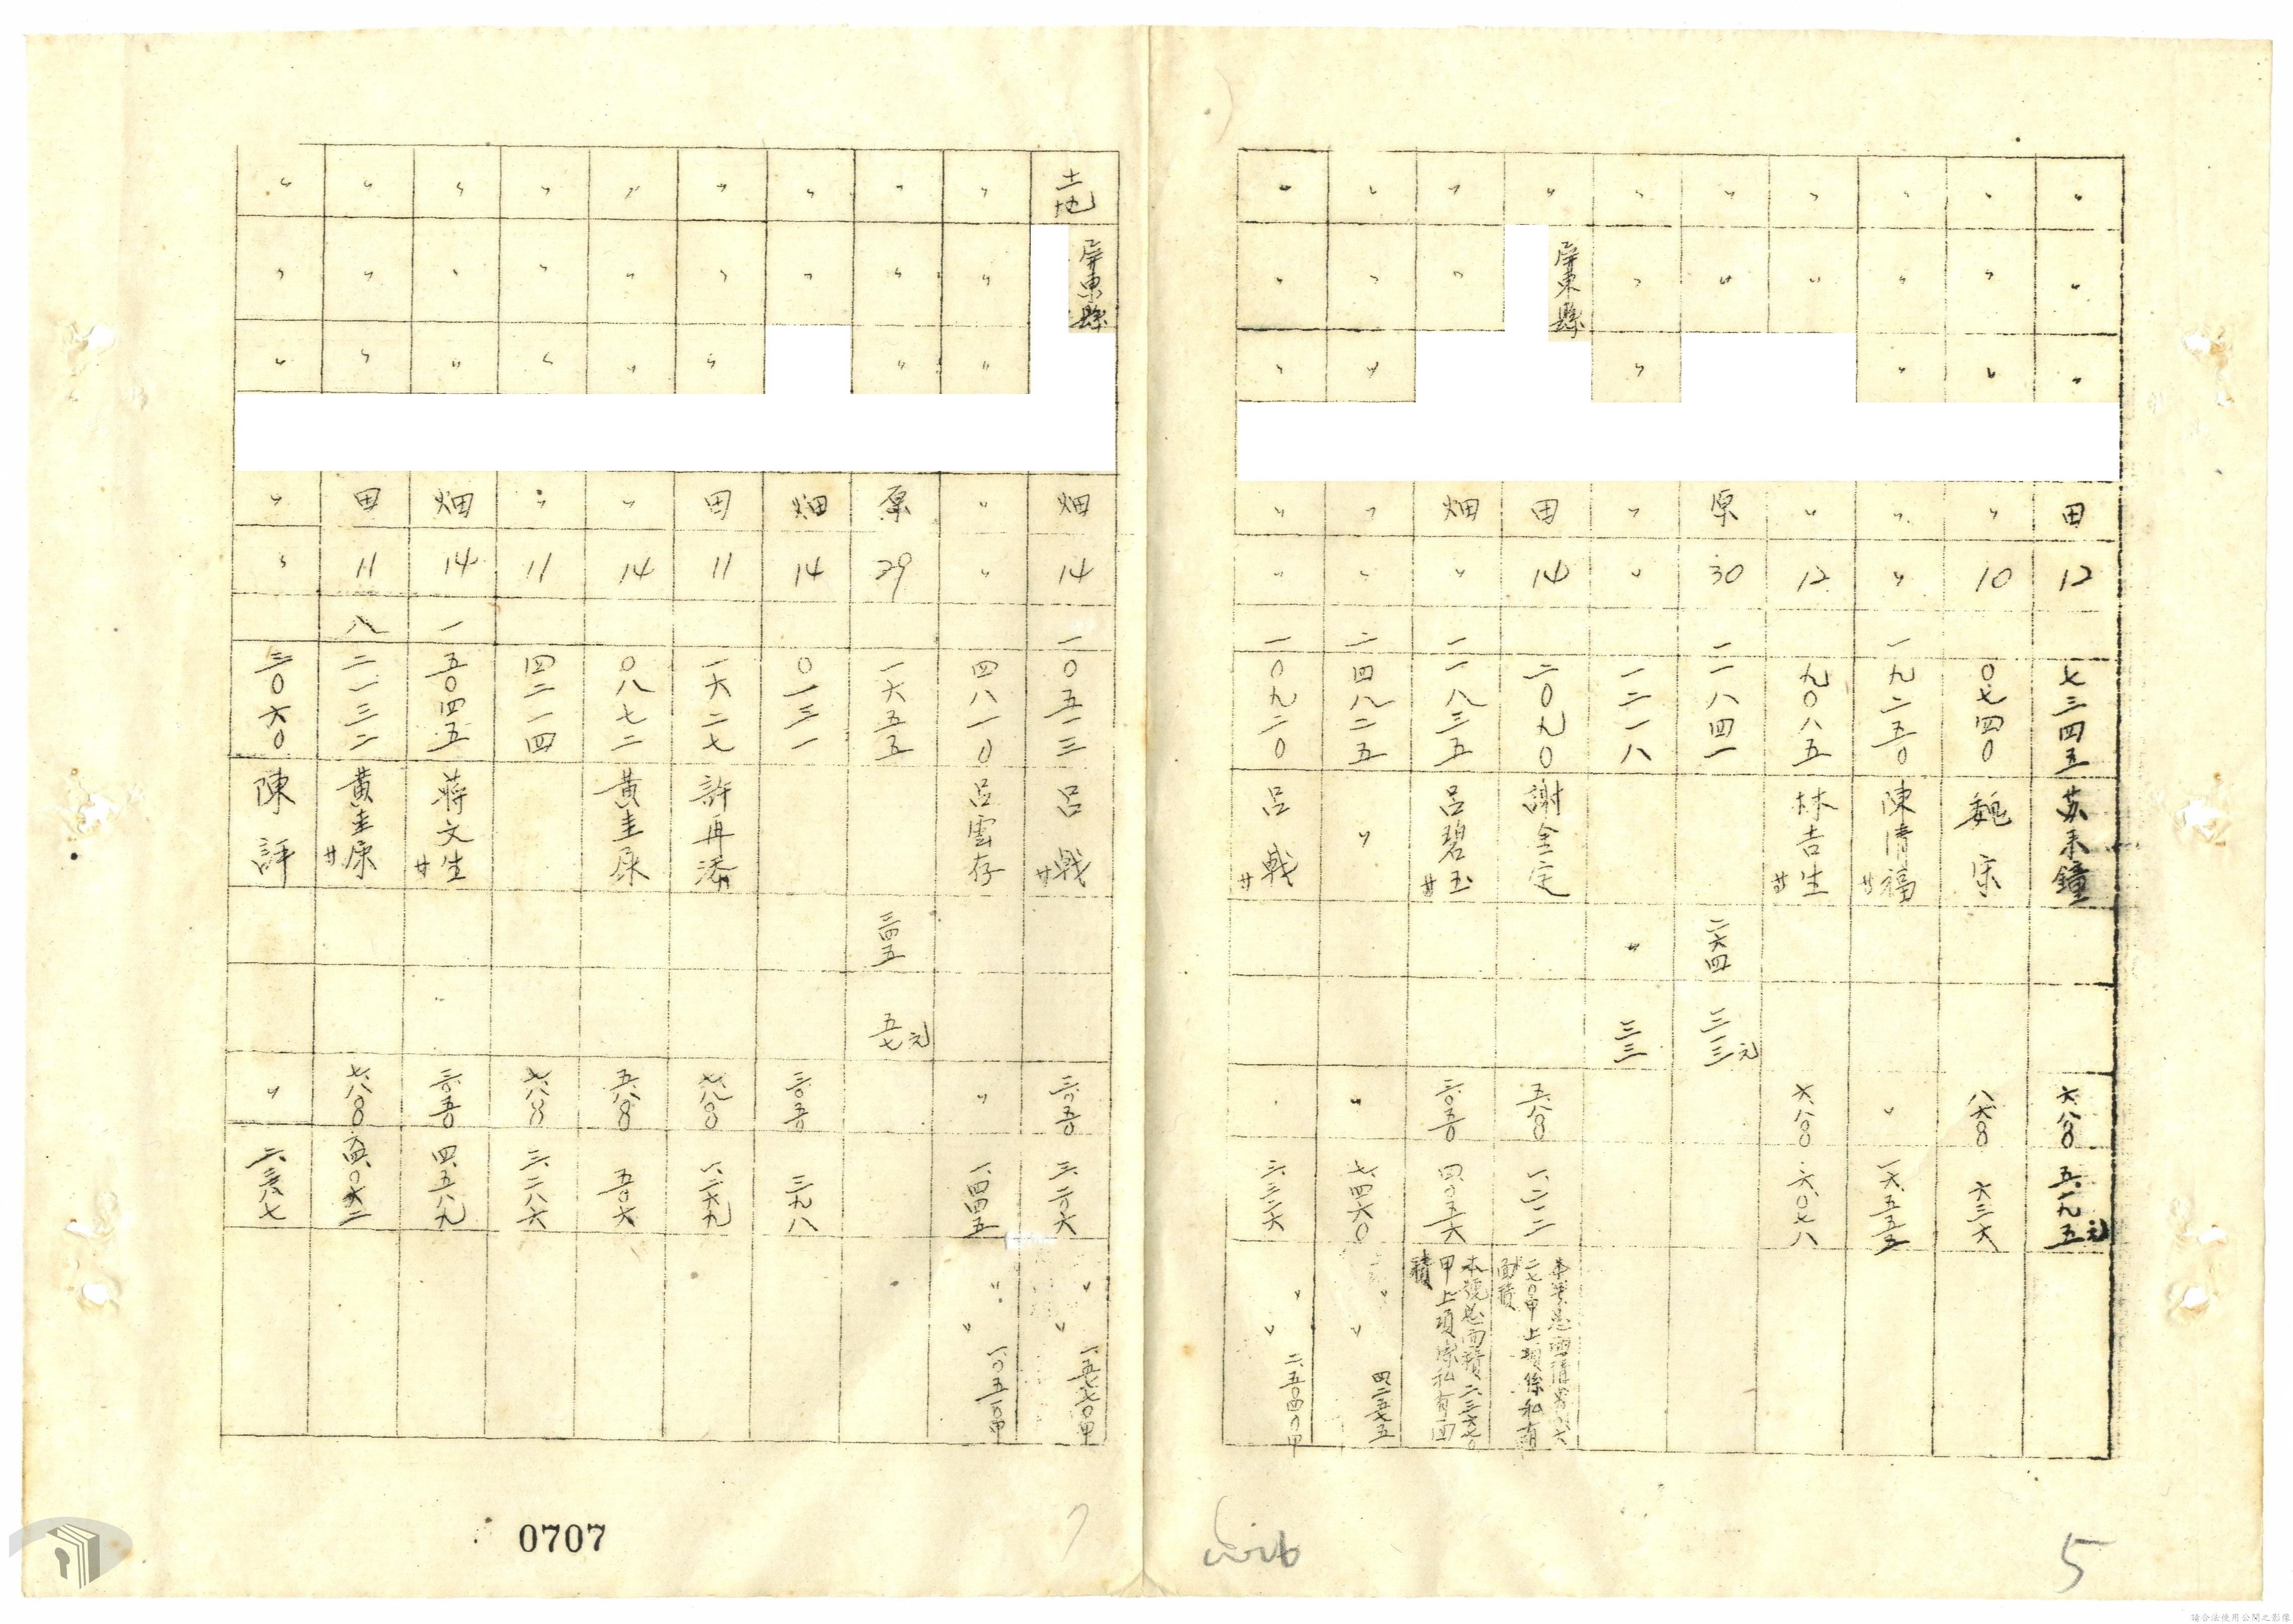 〃 〃 〃 田 12 七三四五 苏禾鐘 六八〇 五一九五元
〃 〃 〃 〃 10 〇七四〇 魏宗 八六〇 六三六
〃 〃 〃 〃 〃 一九二五〇 陳清福 〃 一六五五五
〃 〃 〃 12 九〇八五 林吉生 六八〇 六〇七八
〃 〃 原 30 一一八四一 二六四 三一三元
〃 〃 〃 〃 〃 一二一八 〃 三三
〃 屏東縣 田 14 二〇九〇 謝金定 五八〇 一二一二
〃 〃 畑 〃 一一八三五 呂碧玉 三〇五〇 四〇五六 本號总面積二三六七〇甲上項係私有面積
〃 〃 〃 〃 〃 二四八二五 〃 〃 七四六〇 〃 〃 四二五七五
〃 〃 〃 〃 〃 一〇九二〇 呂戟 三三二六 〃 〃 二五〇四〇甲
土地 屏東縣 畑 14 一〇五一三 呂戟 三〇五〇 三二〇六 〃 〃 一五七七〇甲
〃 〃 〃 〃 〃 四八一〇 呂雲存 〃 一四四五 〃 〃 一〇五一〇甲
〃 〃 〃 原 29 一六五五 三四五 五七元
〃 〃 畑 14 〇一三一 三〇五〇 三九八
〃 〃 〃 田 11 一六二七 許再添 七八〇 一二六九
〃 〃 〃 〃 14 〇八七二 黃圭原 五八〇 五〇六
〃 〃 〃 〃 11 四二一四 七八〇 三二八六
〃 〃 〃 畑 14 一五〇四五 蔣文生 三〇五〇 四五八九
〃 〃 〃 田 11 八二一三二 黃圭原 七八〇
〃 〃 〃 〃 〃 三〇六〇 陳評 〃 二三八七
0707
5
請合法使用公開之影像